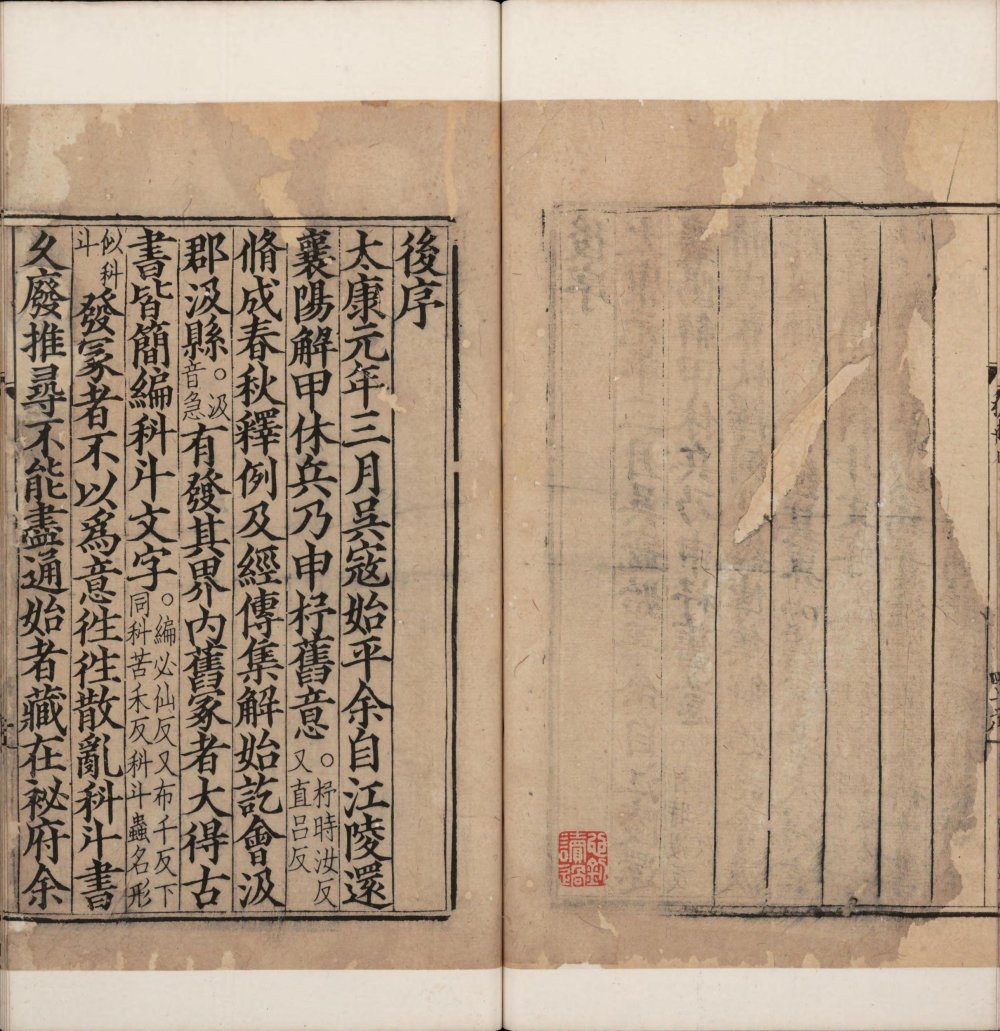 後序
太康元年三月吳寇始平余自江陵還
襄陽解甲休兵乃申杼舊意。杼時汝反又直呂反
脩成春秋釋例及經傳集解始訖會汲
郡汲縣。汲音急有發其界內舊冢者大得古
書皆簡編科斗文字。編必仙反又布千反下同科苦禾反科斗蟲名形
似科斗發冢者不以爲意徃徃散亂科斗書
久廢推尋不能盡通始者藏在祕府余